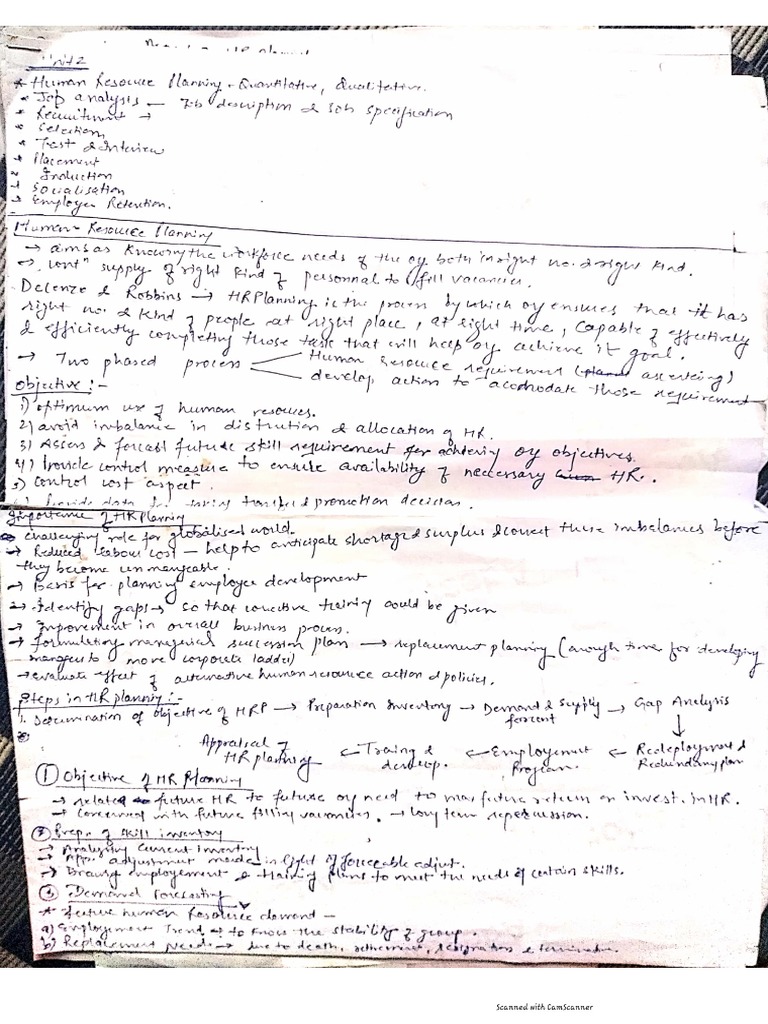 Unit 2
* Human Resource Planning - Quantitative, Qualitative.
* Job analysis — Job description & Job specification
* Recruitment →
* Selection,
* Test & Interview
* Placement
* Induction
* Socialisation
* Employee Retention.
Human Resource Planning
→ aims as knowing the workforce needs of the org both in right no. & right kind.
→ cont" supply of right kind of personnal to fill vacancies.
Decenzo & Robbins → HR Planning is the process by which org ensures that it has
right no. & kind of people at right place, at right time, capable of effectively
& efficiently completing those task that will help org achieve it goal.
→ Two phased process Human Resource requirement (ascerteing)
develop action to accomodate those requirement
Objective :-
1) optimum use of human resources.
2) avoid imbalance in distrution & allocation of HR.
3) Assess & forcast future skill requirement for achieving org objectives.
4) Provide control measure to ensure availability of necessary HR.
5) control cost aspect.
data for transfer & promotion decision.
Importance of HR Planning
challenging role for globalised world.
→ Reduced labour cost — help to anticipate shortage & surplus & correct these imbalances before
they become unmangeable.
→ Basis for planning employee development
→ Identify gaps → so that corrective training could be given
→ Improvement in overall business process.
→ formulating managerial succession plan → replacement planning (enough time for developing
mangers to move corporate ladder)
→ evaluate effect of alternative human resource action & policies.
Steps in HR planning :-
1. Determination of objective of HRP → Preparation Inventory → Demand & Supply forcast → Gap Analysis
Appraisal of HR planning ← Traing & develop. ← Employement Program. ← Redeployment & Redundancy plan
① Objective of HR Planning
→ related future HR to future org need to max future return on invest. in HR.
→ concerned with future filling vacancies. → long term repercussion.
② Prep. of skill inventory
→ Analysing current inventory
→ App. adjustment made in light of forceable adjust.
→ employement & training plans to meet the needs of certain skills.
③ Demand Forecasting
* future human Resource demand —
a) Employement Trend → to know the stability of group.
b) Replacement Needs → due to death, retirement, resignation & termination
Scanned with CamScanner